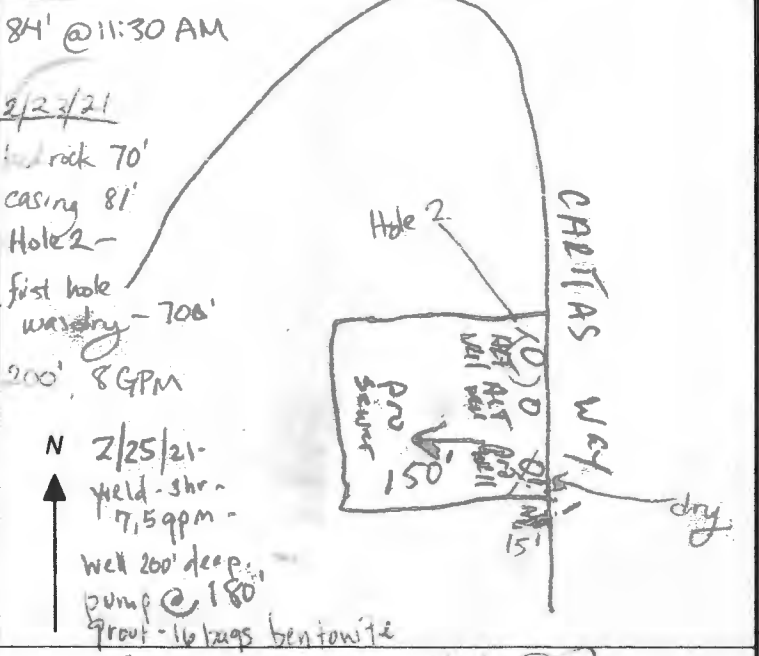 84' @ 11:30 AM
2/23/21
rock 70'
casing 81'
Hole 2 -
first hole
was dry - 700'
200', 8 GPM
N
2/25/21 -
yield - 3hr -
7.5gpm -
well 200' deep.
pump @ 180'
grout - 16 bags bentonite
Hole 2
CARITAS WAY
ALT
well
ALT
well
Pro
sewer
150'
Pro
well
15'
dry